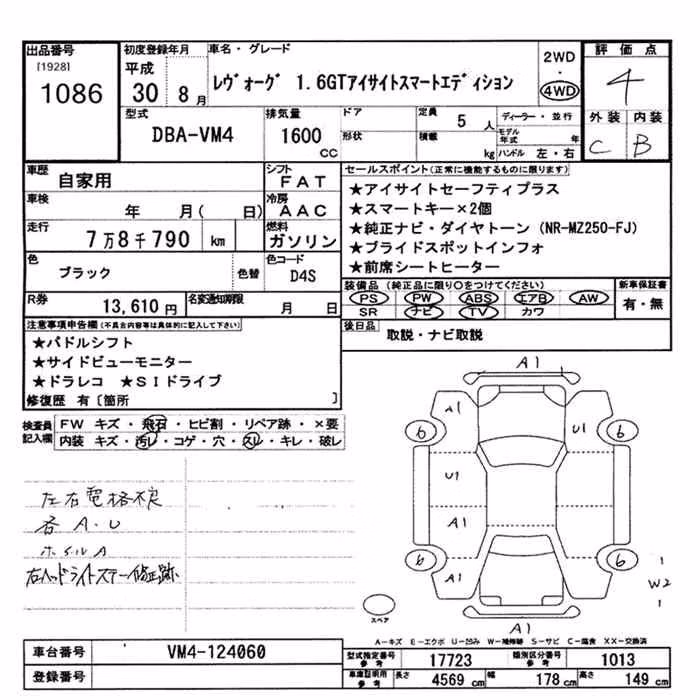 出品番号
[1928]
1086
初度登録年月
平成
30 8月
車名・グレード
レヴォーグ 1.6GTアイサイトスマートエディション
2WD
・
4WD
評価点
4
外装 内装
C B
型式
DBA-VM4
排気量
1600
CC
ドア
形状
定員
5人
積載
kg
ディーラー・並行
モデル年式 年
ハンドル 左・右
車歴
自家用
シフト
FAT
車検
年 月( 日)
冷房
AAC
走行
7万8千790 km
燃料
ガソリン
色
ブラック
色替
色コード
D4S
R券
13,610円
名変通知期限
月 日
セールスポイント(正常に機能するものに限ります)
★アイサイトセーフティプラス
★スマートキー×2個
★純正ナビ・ダイヤトーン(NR-MZ250-FJ)
★ブライドスポットインフォ
★前席シートヒーター
装備品(純正品に限り○をつけてください)
PS PW ABS エアB AW
SR ナビ TV カワ
新車保証書
有・無
後日品
取説・ナビ取説
注意事項申告欄(不具合内容等は具体的に記入して下さい)
★パドルシフト
★サイドビューモニター
★ドラレコ ★SIドライブ
修復歴 有〔箇所 〕
検査員記入欄
FW キズ・飛石・ヒビ割・リペア跡・×要
内装 キズ・汚レ・コゲ・穴・スレ・キレ・破レ
左右電格不良
各A.U
ホイルA
右ヘッドライトステー修正跡
A1
A1 U1
6 6
U1
A1
6 6
A1
1
W2
1
スペア
A1
A-キズ E-エクボ U-凹み W-補修跡 S-サビ C-腐食 XX-交換済
車台番号
VM4-124060
登録番号
型式指定番号
参考
17723
類別区分番号
参考
1013
車庫証明用
参考
長さ 4569 cm
幅 178 cm
高さ 149 cm